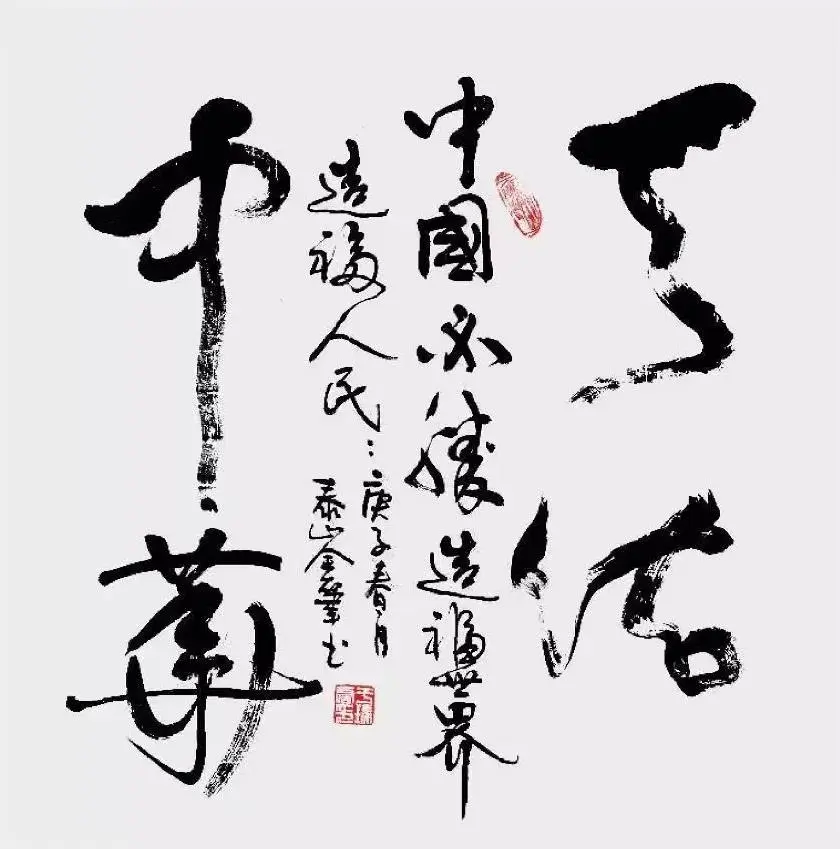 天佑
中國必勝造福世界
造福人民
庚子春月
泰山金業书
中華